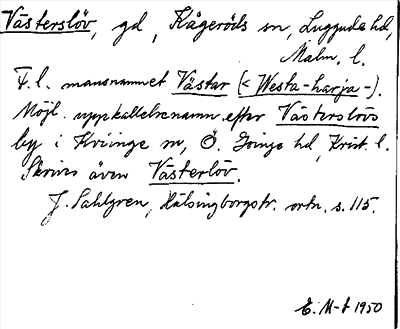 Västerslöv, gd, Kågeröds sn, Luggude hd,
Malm. l.
F. l. mansnamnet Västar (< Westa-harja-).
Möjl. uppkallelsenamn efter Västerslövs
by i Kviinge sn, Ö. Göinge hd, Krist. l.
Skrives även Västerlöv.
J. Sahlgren, Hälsingborgstr. ortn. s. 115.
E. M-t 1950